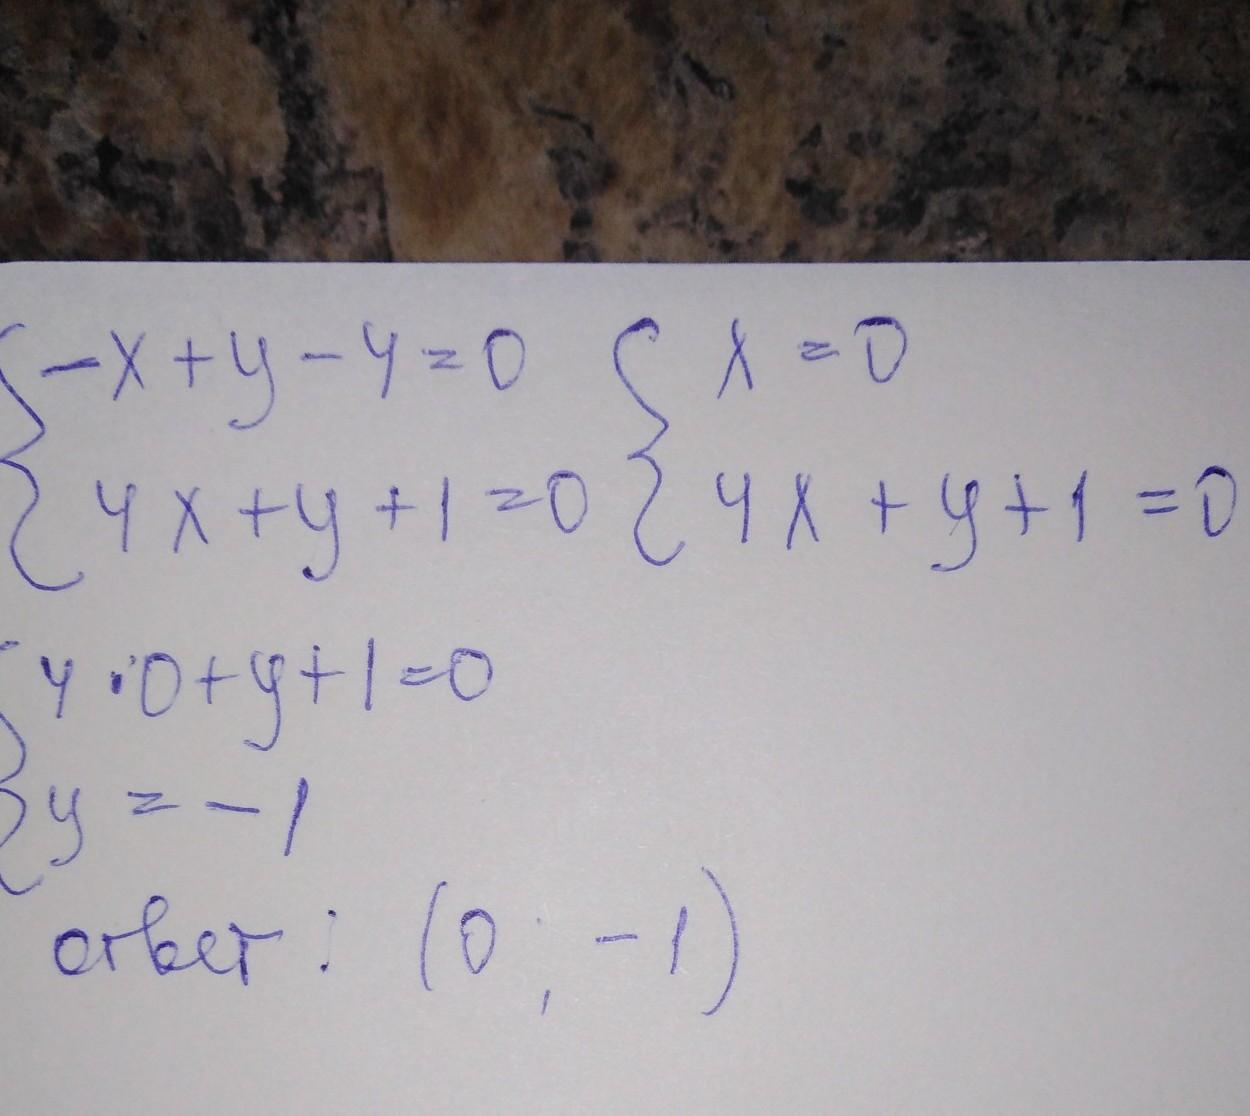 { -x+y-4=0 { x=0
4x+y+1=0 4x+y+1=0
{ 4·0+y+1=0
y=-1
ответ: (0; -1)